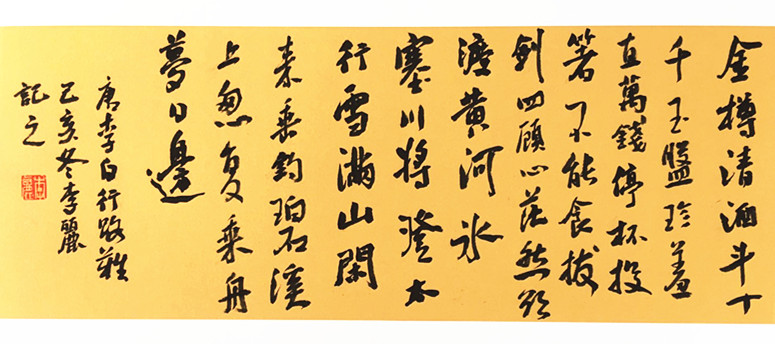 金樽清酒斗十
千玉盤珍羞
直萬錢停杯投
箸不能食拔
劍四顧心茫然欲
渡黄河冰
塞川將登太
行雪滿山閑
来垂釣碧溪
上忽复乘舟
夢日邊
唐李白行路難
己亥冬李麗
記之